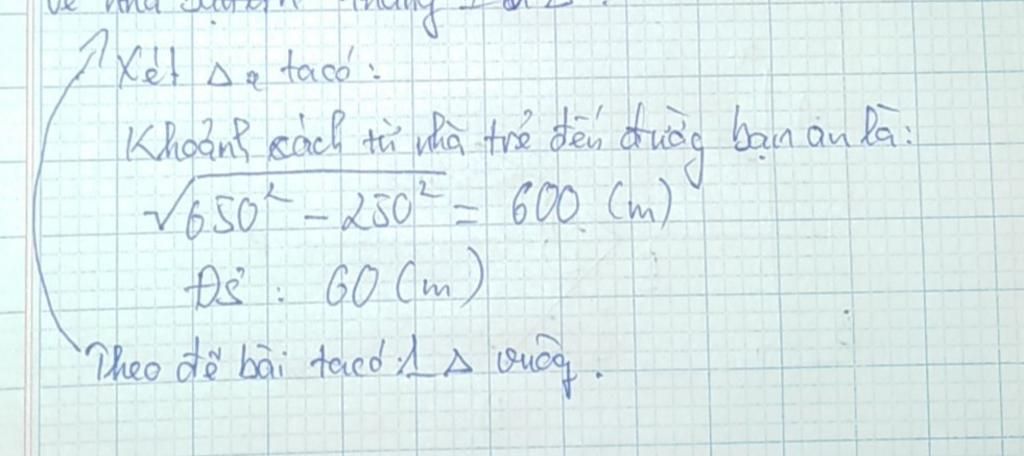 Xét Δ ta có:
Khoảnh cách từ nhà trẻ đến đường bạn an là:
√650² - 250² = 600 (m)
ĐS: 60 (m)
Theo đề bài ta có 1 Δ vuông.